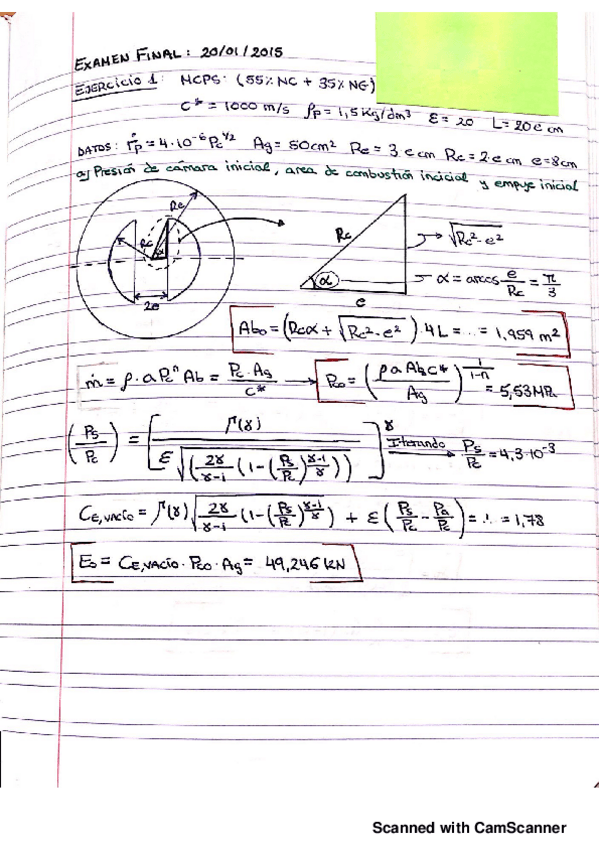 EXAMEN FINAL: 20/01/2015
EJERCICIO 1: MCPS: (55% NC + 35% NG)
C* = 1000 m/s ρp = 1,5 Kg/dm³ ε = 20 L = 20e cm
DATOS: ṙp = 4·10⁻⁶ Pc^1/2 Ag = 50cm² Re = 3·e cm Rc = 2·e cm e = 8cm
a) Presión de cámara inicial, area de combustión incicial y empuje inicial
Re
Rc
α
2e
Rc
α
e
√(Rc² - e²)
α = arccos e/Rc = π/3
Abo = (Rcα + √(Rc² - e²))·4L = ... = 1,959 m²
ṁ = ρ·a Pc^n Ab = Pc·Ag/C* → Pco = (ρ a Ab C*/Ag)^(1/(1-n)) = 5,53 MPa
(Ps/Pc) = [Γ(γ) / (ε √((2γ/(γ-1) (1-(Ps/Pc)^((γ-1)/γ))))]^γ Iterando → Ps/Pc = 4,3·10⁻³
CE,VACÍO = Γ(γ) √(2γ/(γ-1) (1-(Ps/Pc)^((γ-1)/γ))) + ε (Ps/Pc - Pa/Pc) = ... = 1,78
Eo = CE,VACÍO · Pco · Ag = 49,246 kN
Scanned with CamScanner